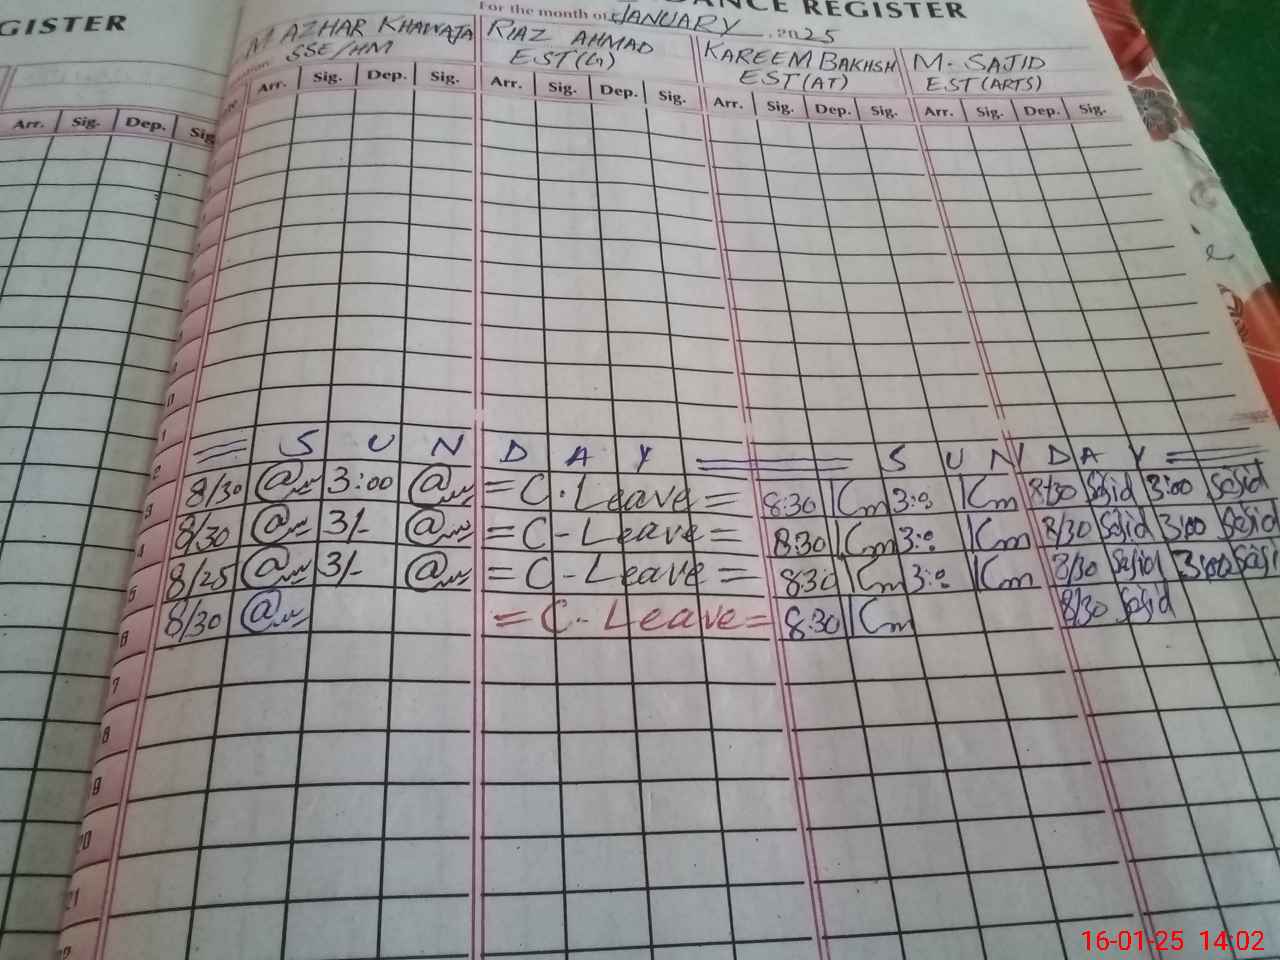 GISTER
ANCE REGISTER
For the month of JANUARY, 2025
M AZHAR KHAWAJA RIAZ AHMAD KAREEM BAKHSH M. SAJID
SSE/HM EST(G) EST(AT) EST(ARTS)
Arr. Sig. Dep. Sig. Arr. Sig. Dep. Sig. Arr. Sig. Dep. Sig. Arr. Sig. Dep. Sig.
Arr. Sig. Dep. Sig
= S U N D A Y = S U N D A Y =
8/30 3:00 = C. Leave = 8:30 3:0 8/30 Sajid 3:00 Sajid
3
8/30 3/- = C - Leave = 8:30 3:0 8/30 Sajid 3:00 Sajid
4
8/25 3/- = C - Leave = 8:30 3:0 8/30 Sajid 3:00 Saji
5
8/30 = C - Leave = 8:30 8/30 Sajid
6
7
8
9
20
21
16-01-25 14:02